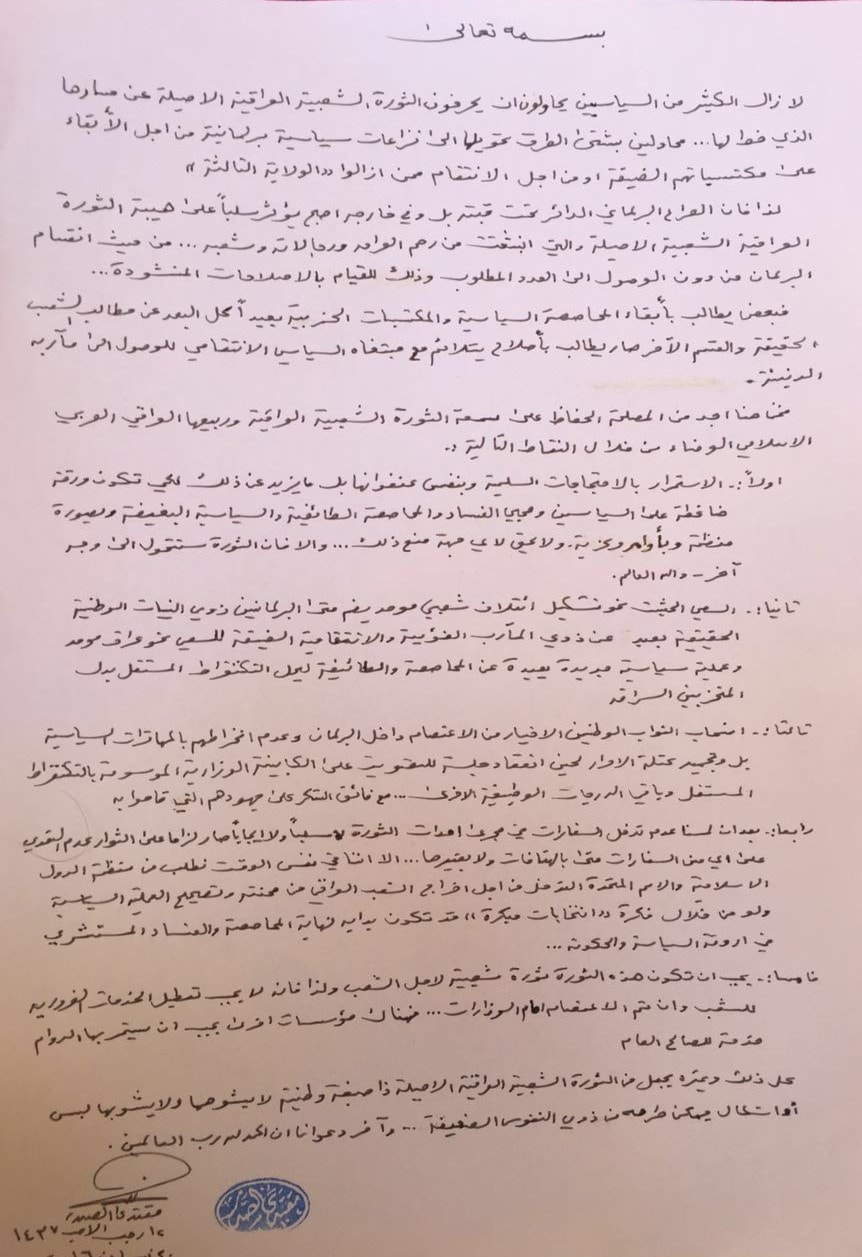 بسمه تعالى
لا زال الكثير من السياسيين يحاولون ان يحرفون الثورة الشعبية العراقية الاصيلة عن مسارها
الذي خط لها... محاولين بشتى الطرق تحويلها الى نزاعات سياسية برلمانية من اجل الأبقاء
على مكتسباتهم الضيقة او من اجل الانتقام ممن ازالوا «الولاية الثالثة»
لذا فان الصراع البرلماني الدائر تحت قبته بل وفي خارجه اصبح يؤثر سلباً على هيبة الثورة
العراقية الشعبية الاصيلة والتي انبثقت من رحم العراق ورجالاته وشعبه ... من حيث انقسام
البرلمان من دون الوصول الى العدد المطلوب وذلك للقيام بالاصلاحات المنشودة...
فبعض يطالب بأبقاء المحاصصة السياسية والمكتسبات الحزبية بعيد أكل البعد عن مطالب الشعب
الحقيقة والقسم الآخر صار يطالب بأصلاح يتلائم مع مبتغاه السياسي الانتقامي للوصول الى مآربه
الدنيئة.
فمن هنا اجد من المصلحة الحفاظ على سمعة الثورة الشعبية العراقية وربيعها العراقي العربي
الاسلامي الوضاء من خلال النقاط التالية :.
اولاً:. الاستمرار بالاحتجاجات السلمية وبنفس عنفوانها بل ما يزيد عن ذلك لكي تكون ورقة
ضاغطة على السياسين ومحبي الفساد والمحاصصة الطائفية والسياسية البغيضة وبصورة
منظمة وبأوامر مركزية. ولا يحق لاي جهة منع ذلك ... والا فان الثورة ستتحول الى وجه
آخر - والله العالم.
ثانيا:. السعي الحثيث نحو تشكيل ائتلاف شعبي موحد يضم حتى البرلمانين ذوي النيات الوطنية
الحقيقية بعيد عن ذوي المآرب الفئوية والانتقامية الضيقة للسعي نحو عراق موحد
وعملية سياسية جديدة بعيدة عن المحاصصة والطائفية ليحل التكنقراط المستقل بدل
المتحزبين السراق
ثالثا:. انسحاب النواب الوطنين الاخيار من الاعتصام داخل البرلمان وعدم انخراطهم بالمهاترات السياسية
بل وتجميد كتلة الاحرار لحين انعقاد جلسة للتصويت على الكابينة الوزارية الموسومة بالتكنقراط
المستقل وباقي الدرجات الوظيفية الاخرى ... مع فائق الشكر على جهودهم التي قاموا به
رابعا:. بعد ان لمسنا عدم تدخل السفارات في مجرى احداث الثورة لا سلباً ولا ايجاباً صار لزاما على الثوار عدم التعدي
على اي من السفارات حتى بالهتافات ولا بغيرها... الا اننا في نفس الوقت نطلب من منظمة الدول
الاسلامية والامم المتحدة التدخل من اجل اخراج الشعب العراقي من محنته وتصحيح العملية السياسية
ولو من خلال فكرة «انتخابات مبكرة» قد تكون بدايه لنهاية المحاصصة والفساد المستشري
في اروقة السياسة والحكومة ...
خامسا:. يجب ان تكون هذه الثورة ثورة شعبية لاجل الشعب ولذا فانه لا يجب تعطيل الخدمات الضروريه
للشعب وان تم الاعتصام امام الوزارات ... فهناك مؤسسات اخرى يجب ان يستمر بها الدوام
خدمة للصالح العام
كل ذلك وغيره يجعل من الثورة الشعبية العراقية الاصيلة ذا صبغة وطنية لا يشوهها ولا يشوبها لبس
أو اشكال يمكن طرحه من ذوي النفوس الضعيفة ... وآخر دعوانا ان الحمد لله رب العالمين.
مقتدى الصدر
١٢ رجب الاصب ١٤٣٧
مقتدى الصدر